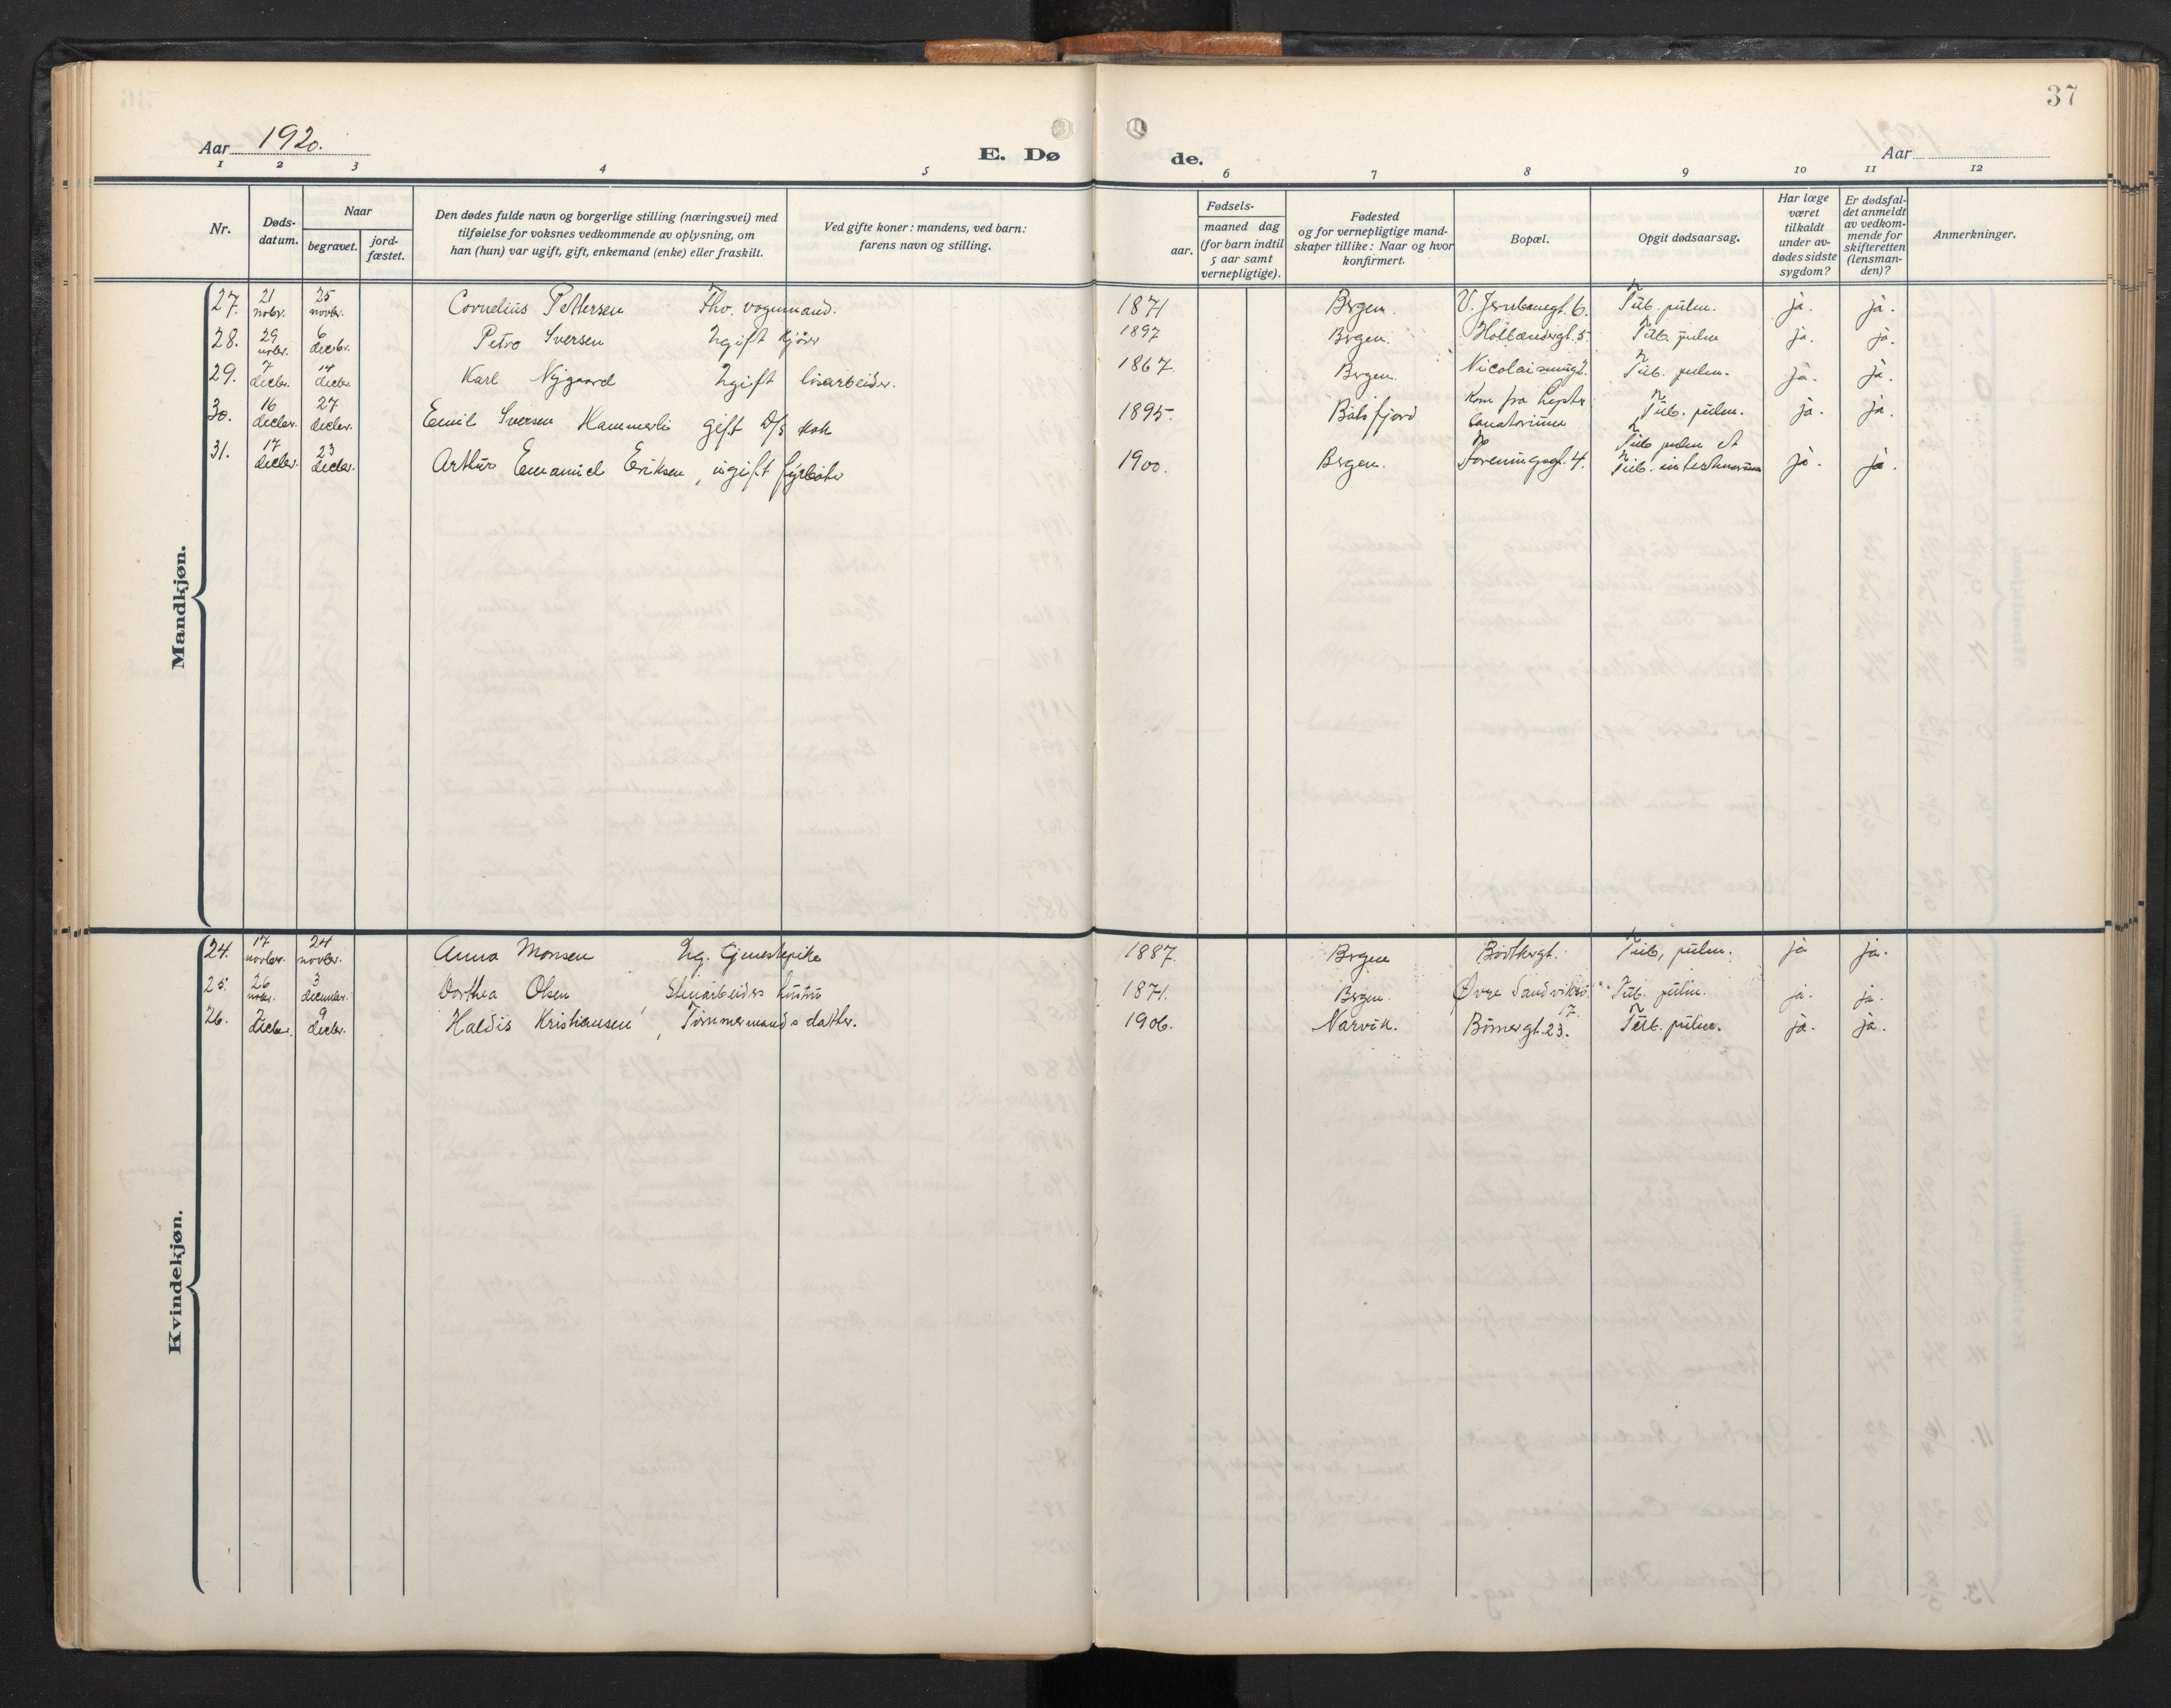 37
Aar 1920.
E. Dø de.
Aar
1 2 3 4 5 6 7 8 9 10 11 12
Nr.
Døds-
datum.
Naar
begravet.
jord-
fæstet.
Den dødes fulde navn og borgerlige stilling (næringsvei) med
tilføielse for voksnes vedkommende av oplysning, om
han (hun) var ugift, gift, enkemand (enke) eller fraskilt.
Ved gifte koner: mandens, ved barn:
farens navn og stilling.
Fødsels-
aar.
maaned dag
(for barn indtil
5 aar samt
vernepligtige).
Fødested
og for vernepligtige mand-
skaper tillike: Naar og hvor
konfirmert.
Bopæl.
Opgit dødsaarsag.
Har læge
været
tilkaldt
under av-
dødes sidste
sygdom?
Er dødsfal-
det anmeldt
av vedkom-
mende for
skifteretten
(lensman-
den)?
Anmerkninger.
Mandkjøn.
27. 21 novbr. 25 novbr. Cornelius Pettersen Fhv. vognmand. 1871 Bergen. 6. Tub. pulm. ja. ja.
28. 29 novbr. 6 decbr. Petro Iversen Ugift Kjører 1897 Bergen. Hollændergt. 5. Tub. pulm ja. ja.
29. 7 decbr. 14 decbr. Karl Nygaard Ugift løsarbeider. 1867. Bergen. Tub. pulm. ja. ja.
30. 16 decbr. 27 decbr. Emil Iversen Hammerli gift D/S kok 1895. Balsfjord Kom fra
Sanatorium Tub. pulm. ja. ja.
31. 17 decbr. 23 decbr. Arthur Emanuel Eriksen, ugift fyrbøter 1900. Bergen. Foreningsgt. 4. Tub pulm et
Tub. intestinorum ja. ja.
Kvindekjøn.
24. 17 novbr. 24 novbr. Anna Monsen Ug. Tjenestepike 1887. Bergen Tub, pulm. ja ja.
25. 26 novbr. 3 december. Dorthea Olsen, Stenarbeiders hustru 1871. Bergen. Øvre Tub. pulm. ja. ja.
26. 2 decbr. 9 decbr. Haldis Kristiansen, Tømmermands datter. 1906. Narvik. 23. Tub. pulm. ja. ja.